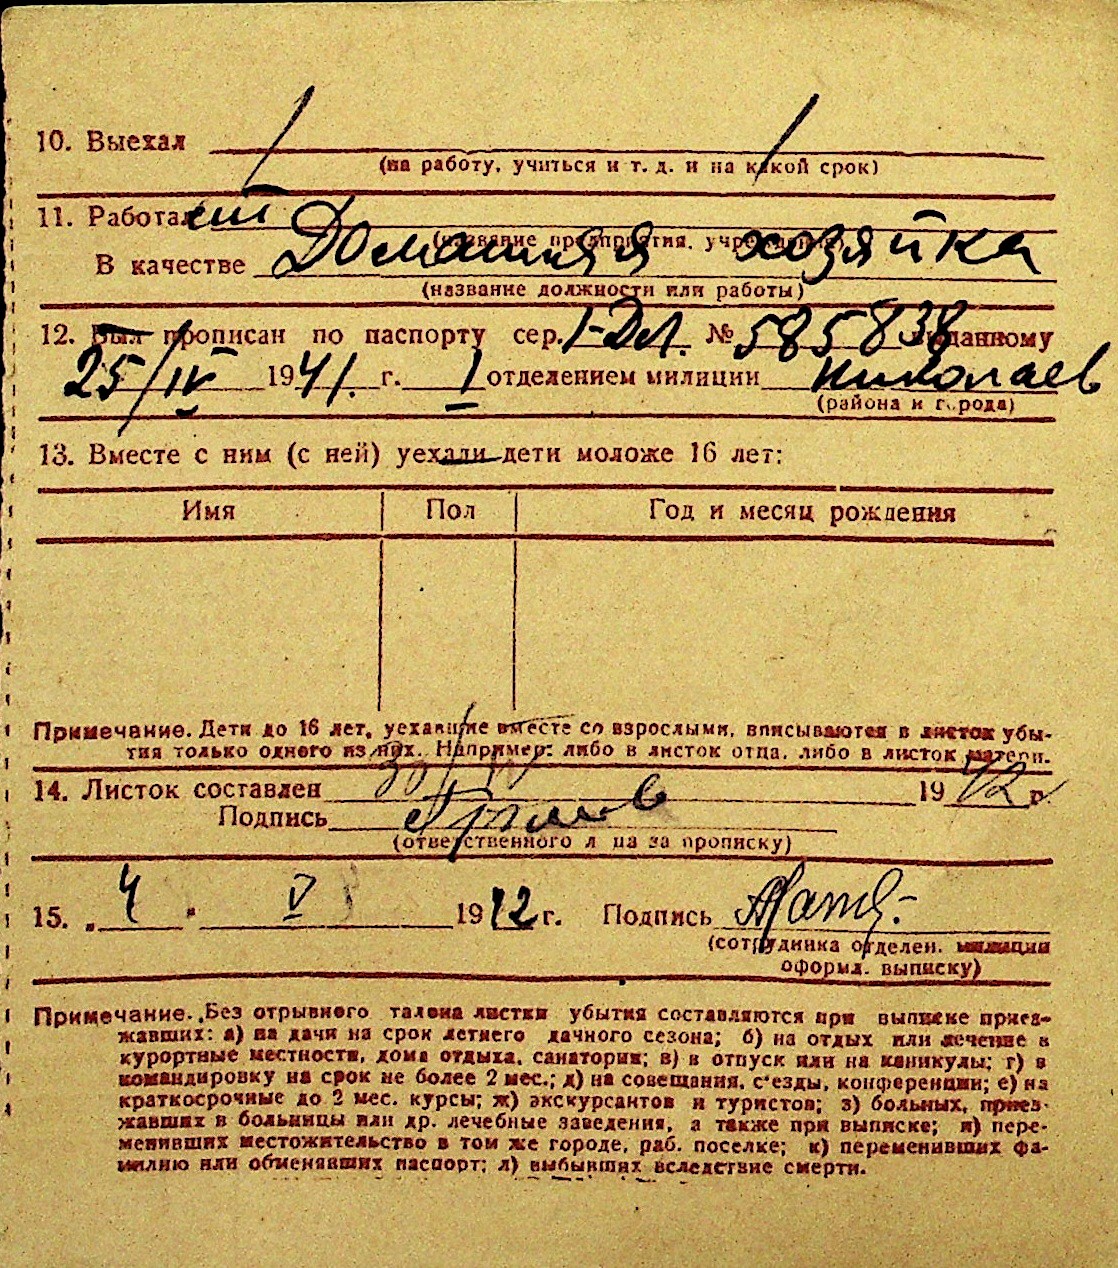 10. Выехал
(на работу, учиться и т. д. и на какой срок)
11. Работал
(название предприятия, учреждения)
В качестве Домашняя хозяйка
(название должности или работы)
12. Был прописан по паспорту сер. I-ДЛ. № 585838 выданному
25/IV 1941. г. I отделением милиции Николаев
(района и города)
13. Вместе с ним (с ней) уехали дети моложе 16 лет:
Имя Пол Год и месяц рождения
Примечание. Дети до 16 лет, уехавшие вместе со взрослыми, вписываются в листок убы-
тия только одного из них. Например: либо в листок отца, либо в листок матери.
14. Листок составлен 30/IV 1942 г.
Подпись
(ответственного лица за прописку)
15. „4" V 1942 г. Подпись
(сотрудника отделен. милиции
оформл. выписку)
Примечание. Без отрывного талона листки убытия составляются при выписке приез-
жавших: а) на дачи на срок летнего дачного сезона; б) на отдых или лечение в
курортные местности, дома отдыха, санатории; в) в отпуск или на каникулы; г) в
командировку на срок не более 2 мес.; д) на совещания, с'езды, конференции; е) на
краткосрочные до 2 мес. курсы; ж) экскурсантов и туристов; з) больных, приез-
жавших в больницы или др. лечебные заведения, а также при выписке; и) пере-
менивших местожительство в том же городе, раб. поселке; к) переменивших фа-
милию или обменявших паспорт; л) выбывших вследствие смерти.